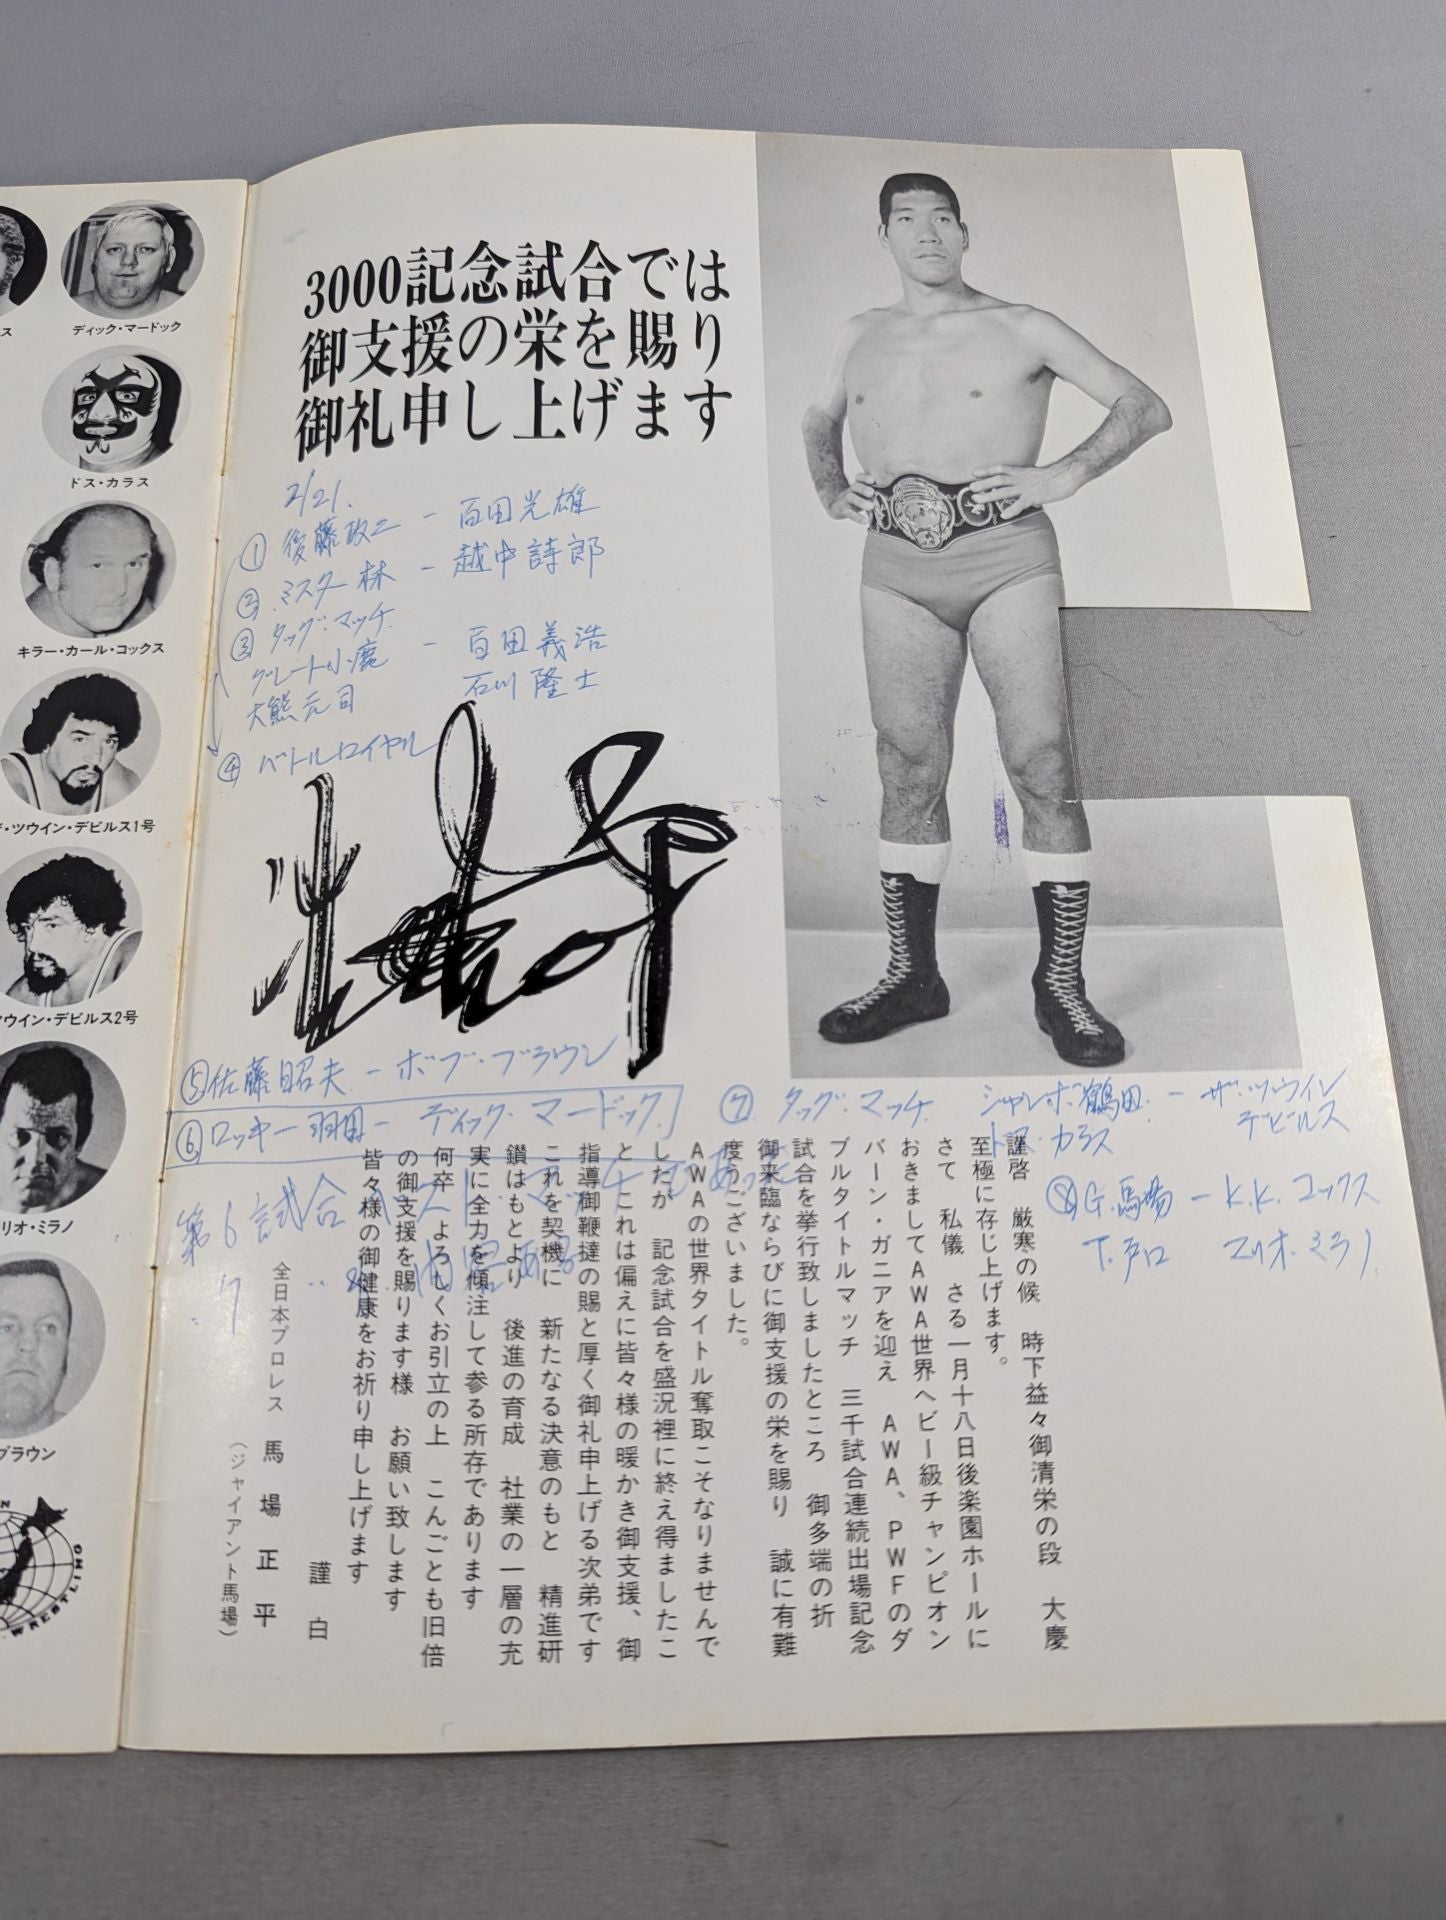 ス
ディック・マードック
ドス・カラス
キラー・カール・コックス
・ツウイン・デビルス1号
ツウイン・デビルス2号
リオ・ミラノ
ブラウン
WRESTLING
3000記念試合では
御支援の栄を賜り
御礼申し上げます
2/21.
① 後藤政二 - 百田光雄
② ミスター林 - 越中詩郎
③ タッグ・マッチ
グレート小鹿 - 百田義浩
大熊元司 石川隆士
④ バトルロイヤル
⑤佐藤昭夫 - ボブ・ブラウン
⑥ロッキー羽田 - ディック・マードック
⑦ タッグ・マッチ ジャンボ鶴田 - ザ・ツウイン
デビルス
ドス・カラス
⑧G.馬場 - K.K.コックス
T.戸口 マリオ・ミラノ
第6試合
謹啓 厳寒の候 時下益々御清栄の段 大慶
至極に存じ上げます。
さて 私儀 さる一月十八日後楽園ホールに
おきましてAWA世界ヘビー級チャンピオン
バーン・ガニアを迎え AWA、PWFのダ
ブルタイトルマッチ 三千試合連続出場記念
試合を挙行致しましたところ 御多端の折
御来臨ならびに御支援の栄を賜り 誠に有難
度うございました。
AWAの世界タイトル奪取こそなりませんで
したが 記念試合を盛況裡に終え得ましたこ
と これは偏えに皆々様の暖かき御支援、御
指導御鞭撻の賜と厚く御礼申上げる次弟です
これを契機に 新たなる決意のもと 精進研
鑚はもとより 後進の育成 社業の一層の充
実に全力を傾注して参る所存であります
何卒 よろしくお引立の上 こんごとも旧倍
の御支援を賜ります様 お願い致します
皆々様の御健康をお祈り申し上げます
謹白
全日本プロレス 馬場正平
(ジャイアント馬場)